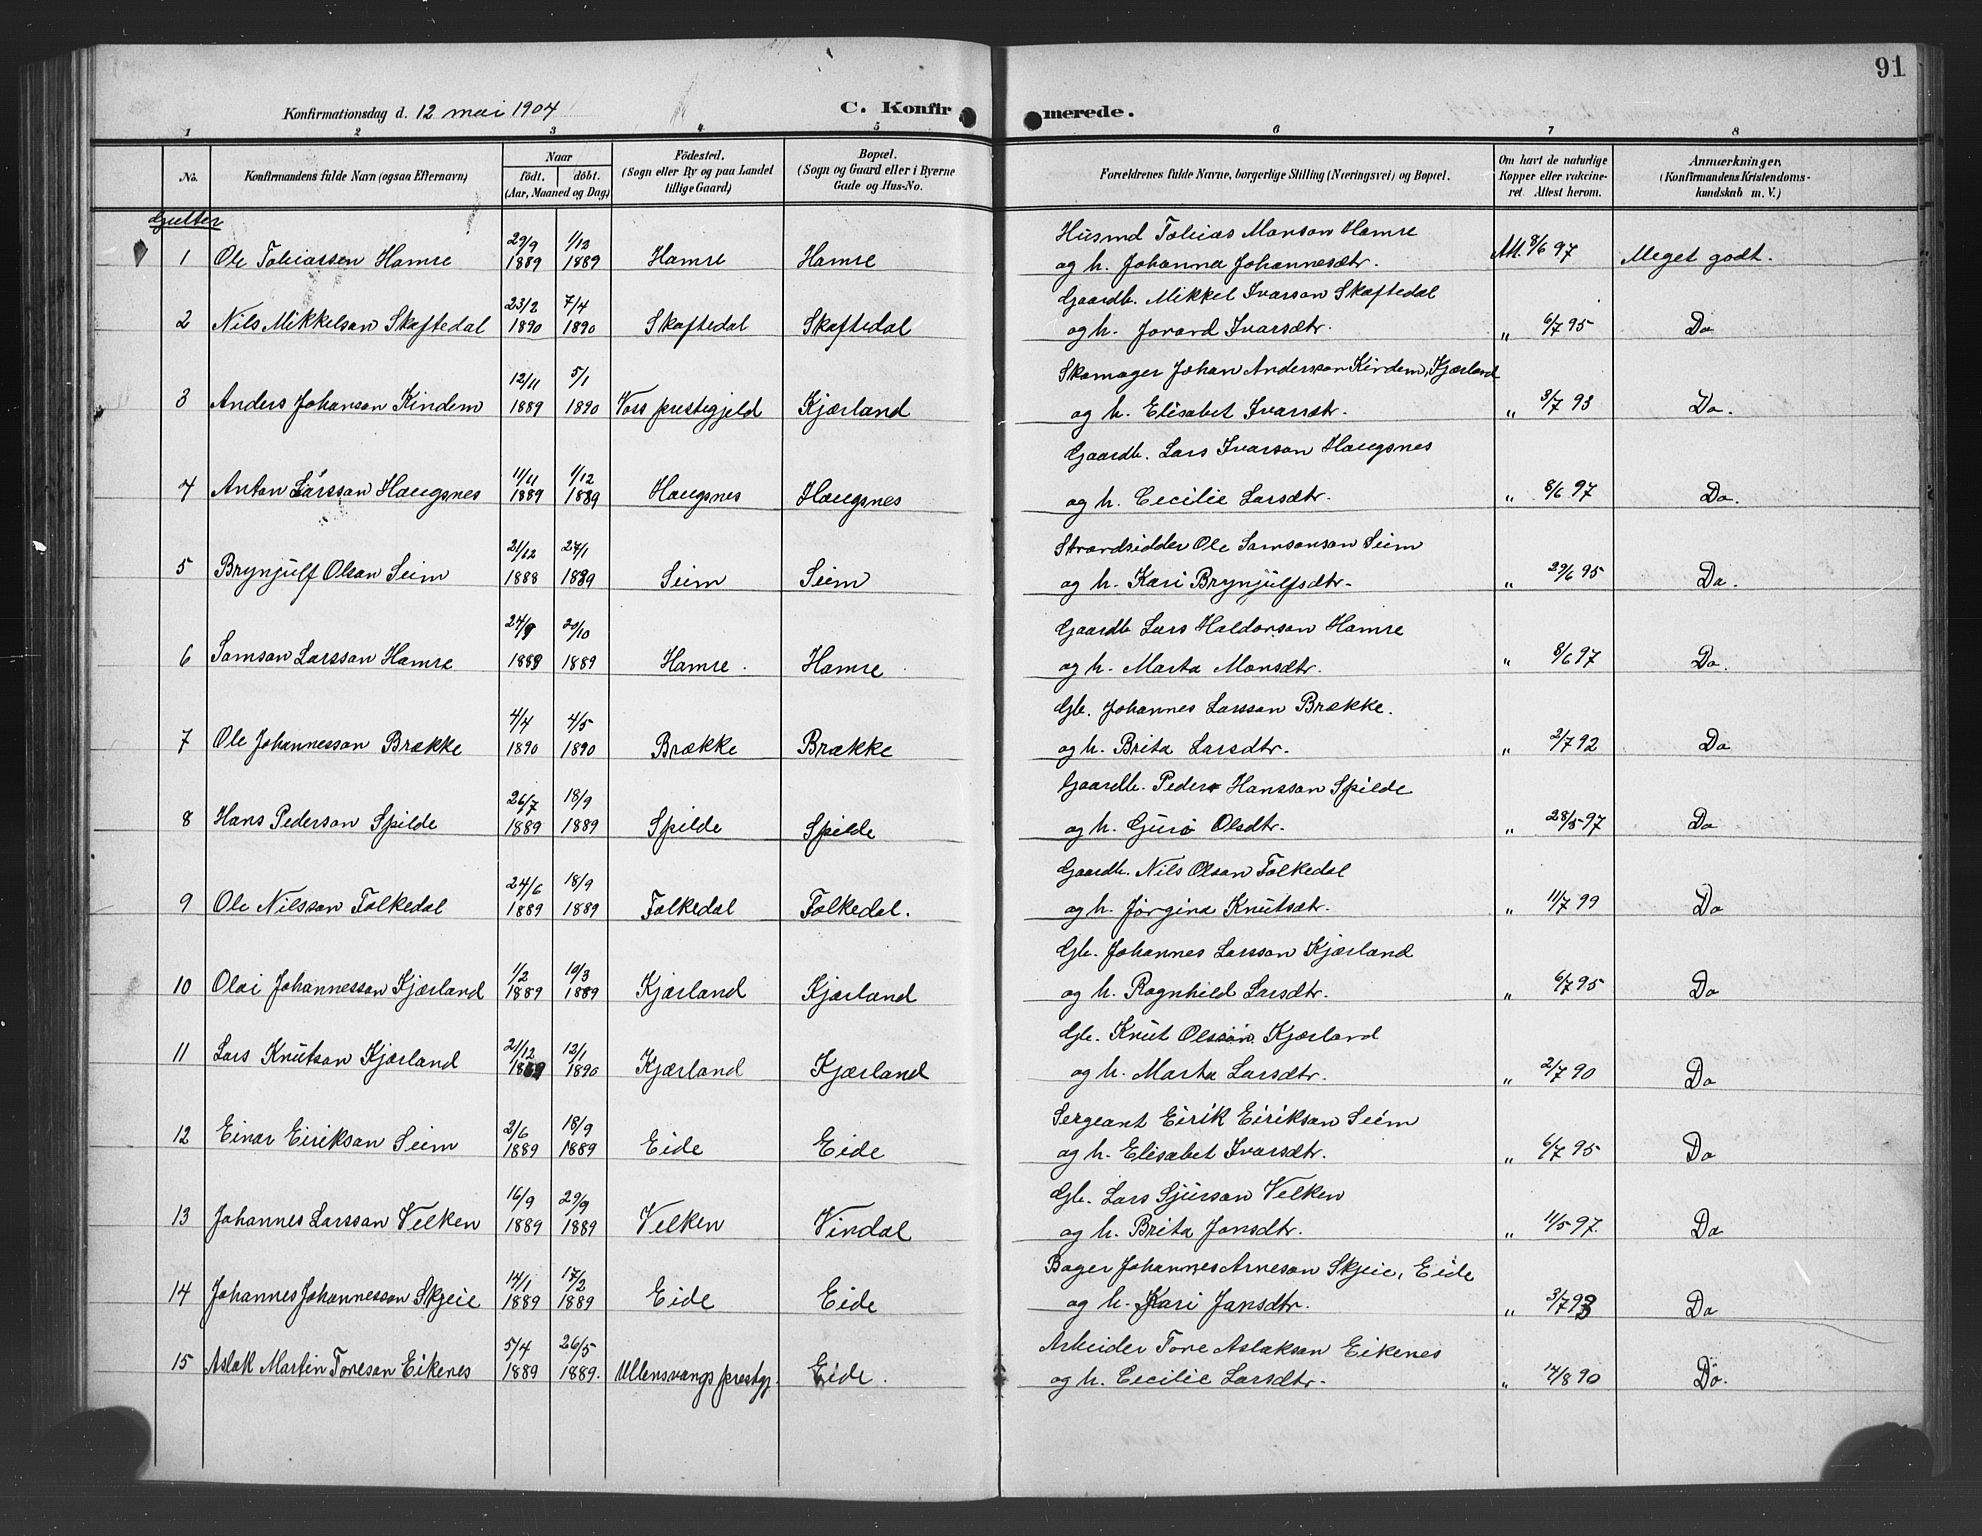 91
Konfirmationsdag d. 12 mai 1904 C. Konfir merede.
1 2 3 4 5 6 7 8
No. Konfirmandens fulde Navn (ogsaa Efternavn) Naar födt. döbt. (Aar, Maaned og Dag) Födested. (Sogn eller By og paa Landet tillige Gaard) Bopæl. (Sogn og Gaard eller i Byerne Gade og Hus-No. Forældrenes fulde Navne, borgerlige Stilling (Næringsvei) og Bopæl. Om havt de naturlige Kopper eller vakcineret. Attest herom. Anmærkninger. (Konfirmandens Kristendomskundskab m. V.)
Gutter
Husmd Tobias Monson Hamre
1 Ole Tobiassen Hamre 29/9 1889 1/12 1889 Hamre Hamre og h. Johanna Johannesdtr. Att. 8/6 97 Meget godt.
Gaardb. Mikkel Ivarson Skaftedal
2 Nils Mikkelson Skaftedal 23/2 1890 7/4 1890 Skaftedal Skaftedal og h. Jorand Ivarsdtr. " 6/7 95 Do
Skomager Johan Andersson Kindem, Kjærland
3 Anders Johanson Kindem 12/11 1889 5/1 1890 Voss prestegjeld Kjærland og h. Elisabet Ivarsdtr. " 3/7 93 Do.
Gaardb. Lars Ivarson Haugsnes
4 Anton Larsson Haugsnes 11/11 1889 1/12 1889 Haugsnes Haugsnes og h. Cecilie Larsdtr. " 8/6 97 Do.
Strandsidder Ole Samsonson Seim
5 Brynjulf Olson Seim 21/12 1888 24/1 1889 Seim Seim og h. Kari Brynjulfsdtr. " 29/6 95 Do.
Gaardb Lars Haldorson Hamre
6 Samson Larsson Hamre 24/9 1889 20/10 1889 Hamre. Hamre og h. Marta Monsdtr. " 8/6 97 Do.
Gb. Johannes Larsson Brække.
7 Ole Johannesson Brække 4/4 1890 4/5 1890 Brække Brække og h. Brita Larsdtr. " 2/7 92 Do
Gaardb. Peder Hansson Spilde
8 Hans Pederson Spilde 26/7 1889 18/9 1889 Spilde Spilde og h. Guro Olsdtr. " 28/5 97 Do
Gaardb. Nils Olson Folkedal
9 Ole Nilsson Folkedal 24/6 1889 18/9 1889 Folkedal Folkedal. og h. Jørgina Knutsdtr. " 11/7 99 Do
Gb. Johannes Larsson Kjærland
10 Olai Johannesson Kjærland 1/2 1889 10/3 1889 Kjærland Kjærland og h. Ragnhild Larsdtr. " 6/7 95 Do
Gb. Knut Olsson Kjærland
11 Lars Knutson Kjærland 21/12 1889 12/1 1890 Kjærland Kjærland og h. Marta Larsdtr. " 2/7 90 Do
Sergeant Eirik Eirikson Seim
12 Einar Eirikson Seim 2/6 1889 18/9 1889 Eide Eide og h. Elisabet Ivarsdtr. " 6/7 95 Do
Gb. Lars Sjurson Velken
13 Johannes Larsson Velken 16/9 1889 29/9 1889 Velken Vindal og h. Brita Jonsdtr. " 11/5 97. Do
Bager Johannes Arneson Skjeie, Eide
14 Johannes Johannesson Skjeie 14/1 1889 17/2 1889 Eide Eide og h. Kari Jansdtr. " 3/7 93 Do
Arbeider Tore Aslakson Eikenes
15 Aslak Martin Toreson Eikenes 5/4 1889 26/5 1889. Ullensvangs prestgj. Eide. og h. Cecilie Larsdtr. " 14/8 90 Do.